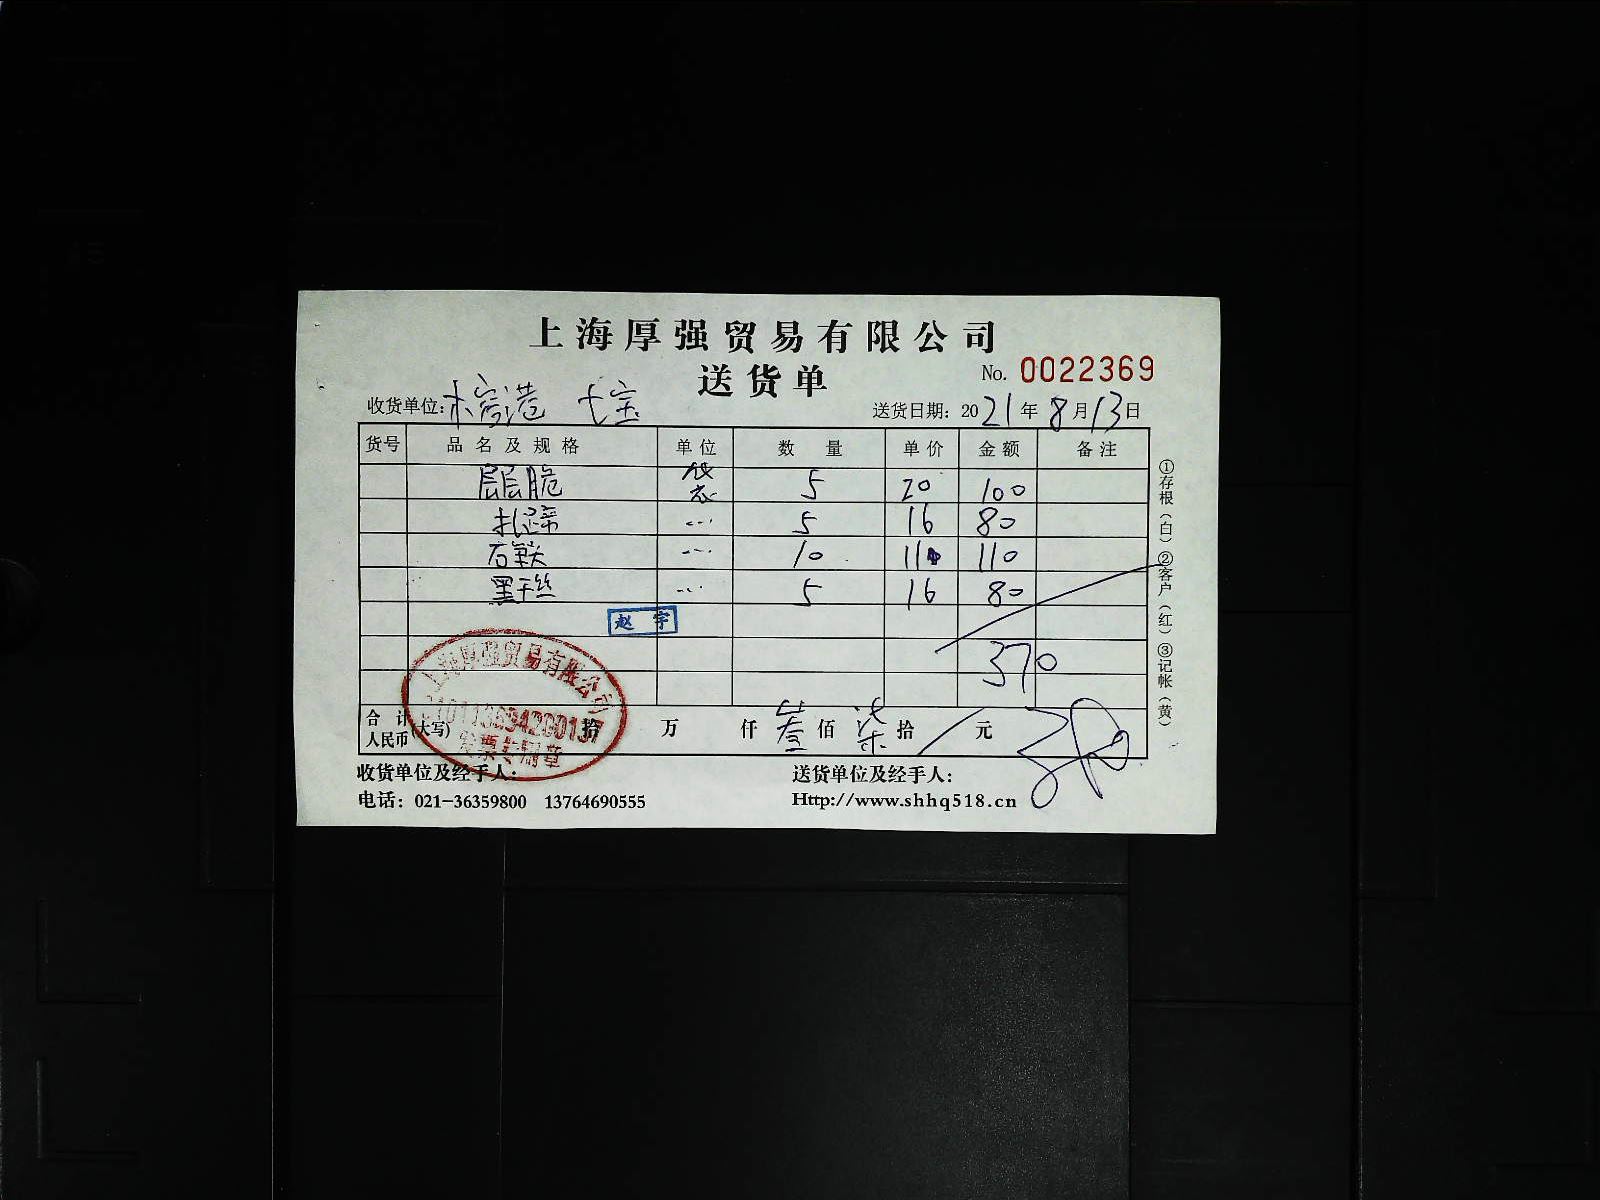 上海厚强贸易有限公司
送货单
No. 0022369
收货单位: 七宝
送货日期: 2021年8月13日
货号 品名及规格 单位 数量 单价 金额 备注
层层脆 袋 5 20 100
扎蹄 … 5 16 80
石 … 10 11 110
黑干丝 … 5 16 80
赵宇
370
合计人民币(大写) 拾 万 仟 叁 佰 柒 拾 元
上海厚强贸易有限公司
发票专用章
收货单位及经手人:
送货单位及经手人:
电话: 021-36359800 13764690555
Http://www.shhq518.cn
①存根(白)②客户(红)③记帐(黄)